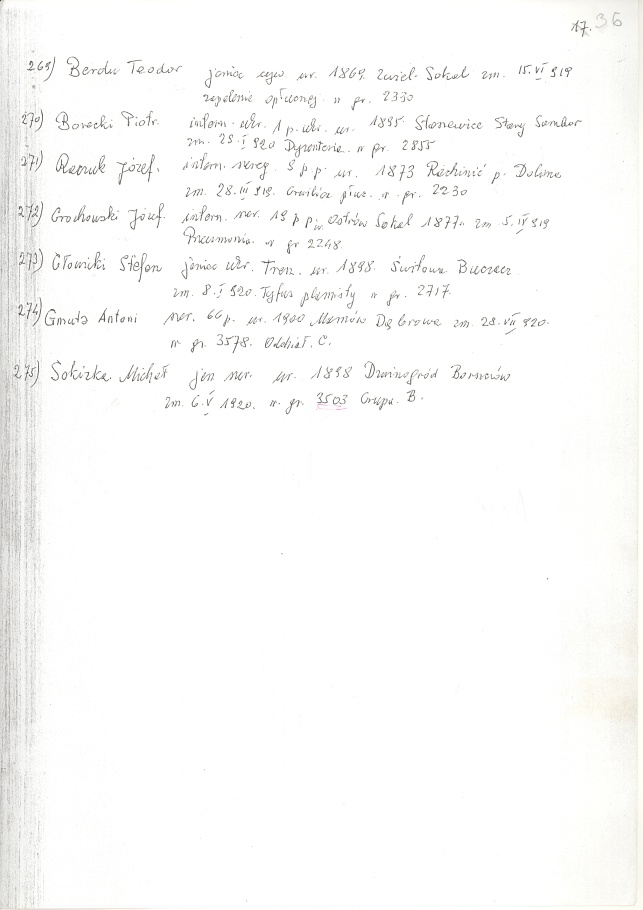 17. 36
269) Berdu Teodor jeniec ur. 1869. Sokal zm. 15.VI 919
zapalenie opłucnej nr gr. 2330
270) Borecki Piotr. intern. ukr. 1 p. ukr. ur. 1895. Stary Sambor
zm. 29.I 920 Dyzenteria. nr gr. 2855
271) Józef. intern. szereg. 9 p.p. ur. 1873 p. Dolina
zm. 28.III 919. płuc. nr gr. 2230
272) Grochowski Józef. intern. szer. 19 p p. ur. Ostrów Sokal 1877. zm 5.IV 919
Pneumonia. nr gr 2248.
273) Głowicki Stefan jeniec ukr. ur. 1898. Buczacz
zm. 8.I 920. Tyfus plamisty nr gr. 2717.
274) Gmuła Antoni szer. 66 p. ur. 1900 Dąbrowa zm. 28.VII 920.
nr gr. 3578. Oddział. C.
275) Michał jen szer. ur. 1898 Borszczów
zm. 6.V 1920. nr. gr. 3503 Grupa. B.